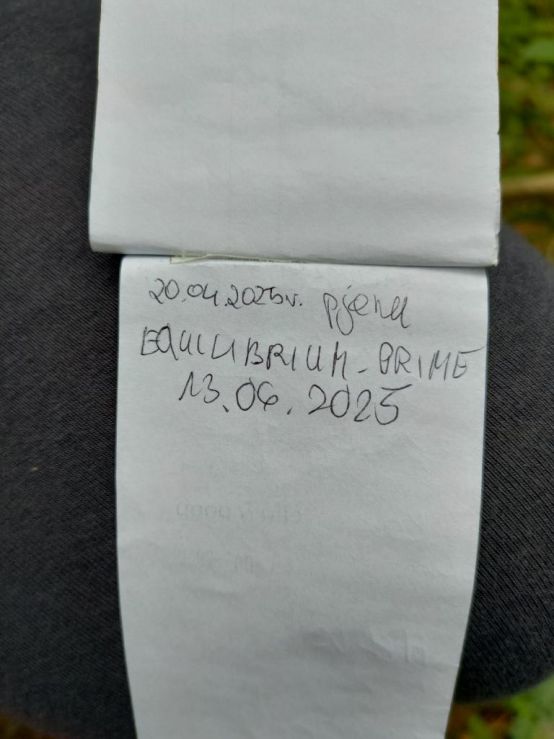 20.04.2025r. pjenu
EQUILIBRIUM-PRIME
13.06.2025